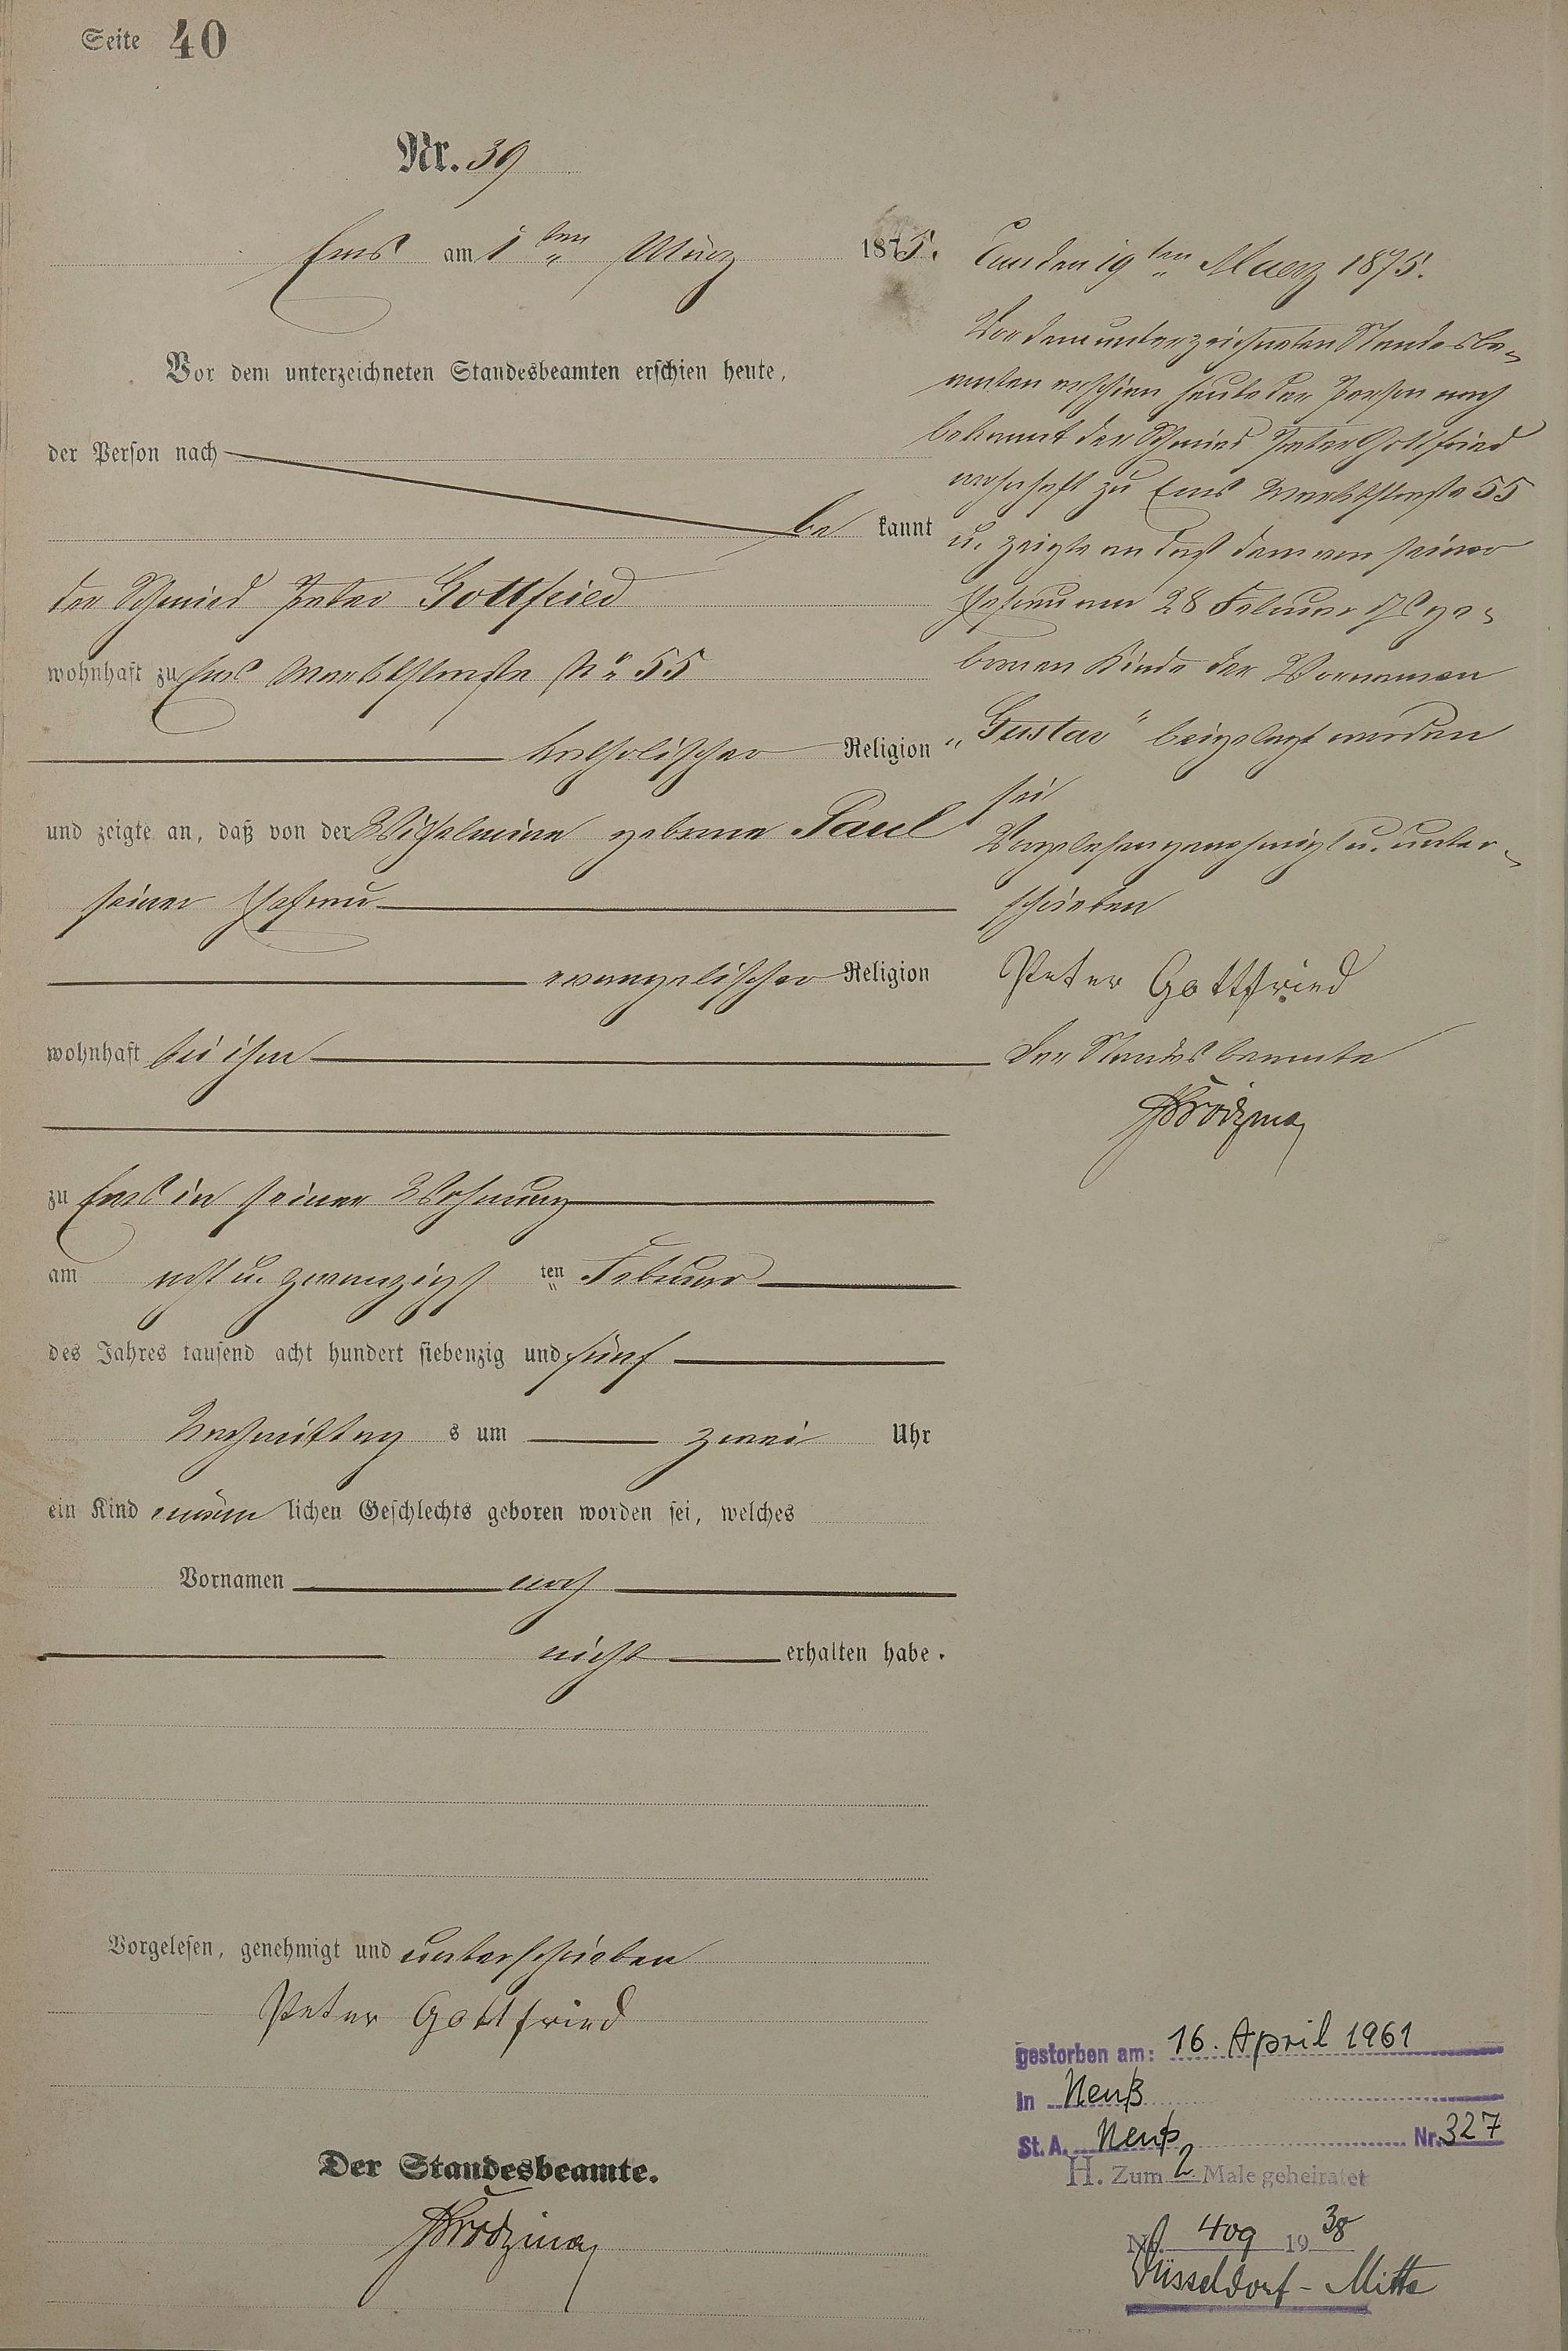 Seite 40
Nr. 39
Ems am 1ten März 1875.
Vor dem unterzeichneten Standesbeamten erschien heute,
der Person nach
be kannt
der Schmied Peter Gottfried
wohnhaft zu Ems Marktstraße No 55
katholischer Religion
und zeigte an, daß von der Wilhelmine geborne Paul
seiner Ehefrau
evangelischer Religion
wohnhaft bei ihm
zu Ems in seiner Wohnung
am acht u. zwanzigst ten Februar
des Jahres tausend acht hundert siebenzig und fünf
Nachmittag s um zwei Uhr
ein Kind männ lichen Geschlechts geboren worden sei, welches
Vornamen noch
nicht erhalten habe.
Vorgelesen, genehmigt und unterschrieben
Peter Gottfried
Der Standesbeamte.
Ems den 19ten Maerz 1875.
Vor dem unterzeichneten Standesbe-
amten erschien heute der Person nach
bekannt der Schmied Peter Gottfried
wohnhaft zu Ems Marktstraße 55
u. zeigte an daß dem von seiner
Ehefrau am 28 Februar 75 ge-
bornen Kinde der Vornamen
"Gustav" beigelegt worden
sei
Vorgelesen genehmigt u. unter-
schrieben
Peter Gottfried
Der Standesbeamte
gestorben am: 16. April 1961
in Neuß
St. A. Neuß Nr. 327
H. Zum 2 Male geheiratet
Nr. 409 19 38
Düsseldorf - Mitte